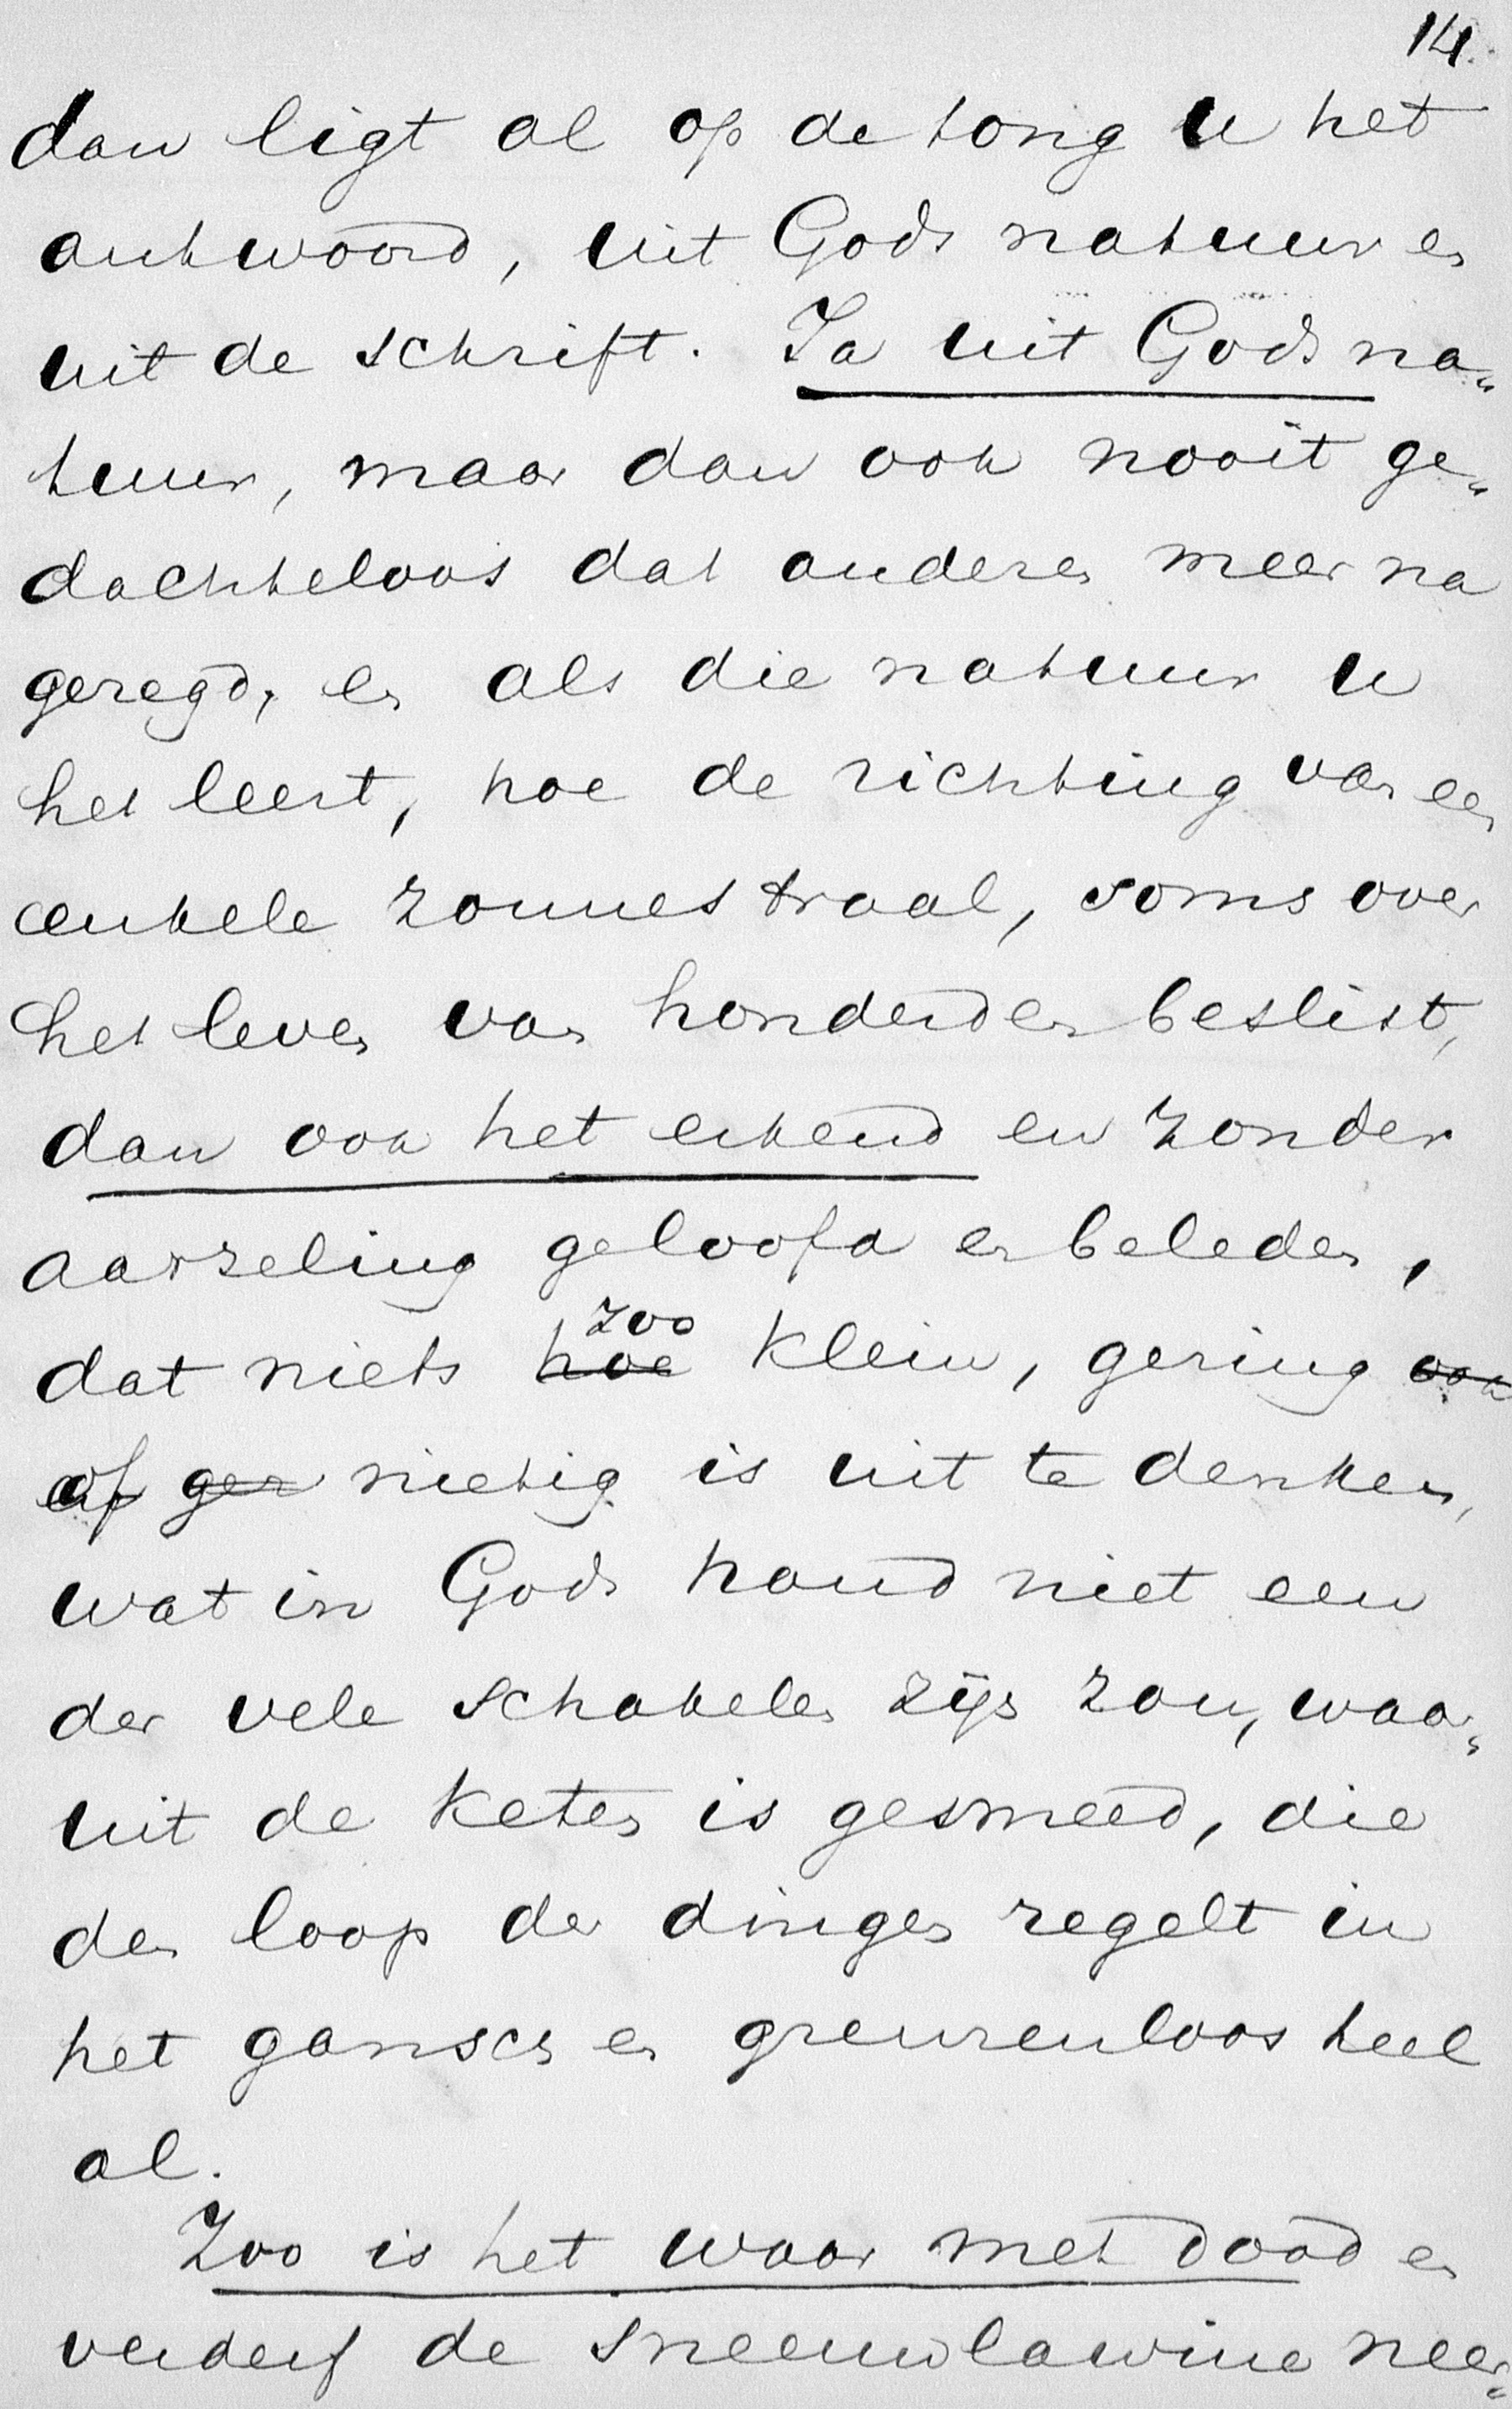 14.
dan ligt al op de tong u het
antwoord, uit Gods natuur en
uit de schrift. Ja uit Gods na„
tuur, maar dan ook nooit ge„
dachteloos dat anderen meer na
gezegd, en als die natuur u
het leert, hoe de richting van een
enkele zonnestraal, soms over
het leven van honderden beslist,
dan ook het erkend en zonder
aarzeling geloofd en beleden,
dat niets hoe zoo klein, gering ook
of ger nietig is uit te denken,
wat in Gods hand niet een
der vele schakelen zijn zou, waar„
uit de keten is gesmeed, die
den loop der dingen regelt in
het gansch en grenzenloos heel
al.
Zoo is het waar met dood en
verderf de sneeuwlawine neer„